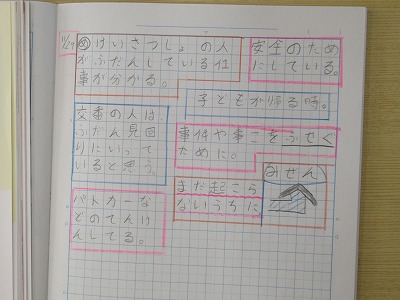 11/29
めけいさつしょの人
がふだんしている仕
事が分かる。
安全のため
にしている。
子どもが帰る時。
交番の人は
ふだん見回
りにいって
いると思う。
事件や事こをふせぐ
ために。
みせん
まだ起こら
ないうちに
パトカーな
どのてんけ
んしてる。